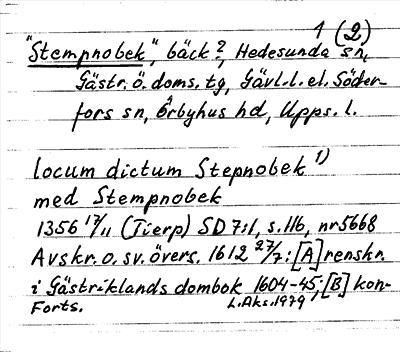 1 (2)
"Stempnobek", bäck?, Hedesunda sn,
Gästr. ö. doms. tg, Gävl. l. el. Söder-
fors sn, Örbyhus hd, Upps. l.
locum dictum Stepnobek 1)
med Stempnobek
1356 17/11 (Tierp) SD 7:1, s. 116, nr 5668
Avskr. o. sv. övers. 1612 27/7: [A] renskr.
i Gästriklands dombok 1604-45; [B] kon-
Forts. L. Aks. 1979